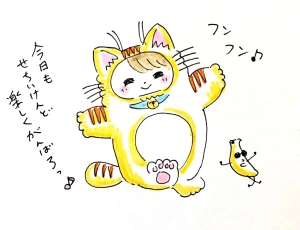 今日も
せちがいけんど
楽しくがんばろっ♪
フン
フン♪